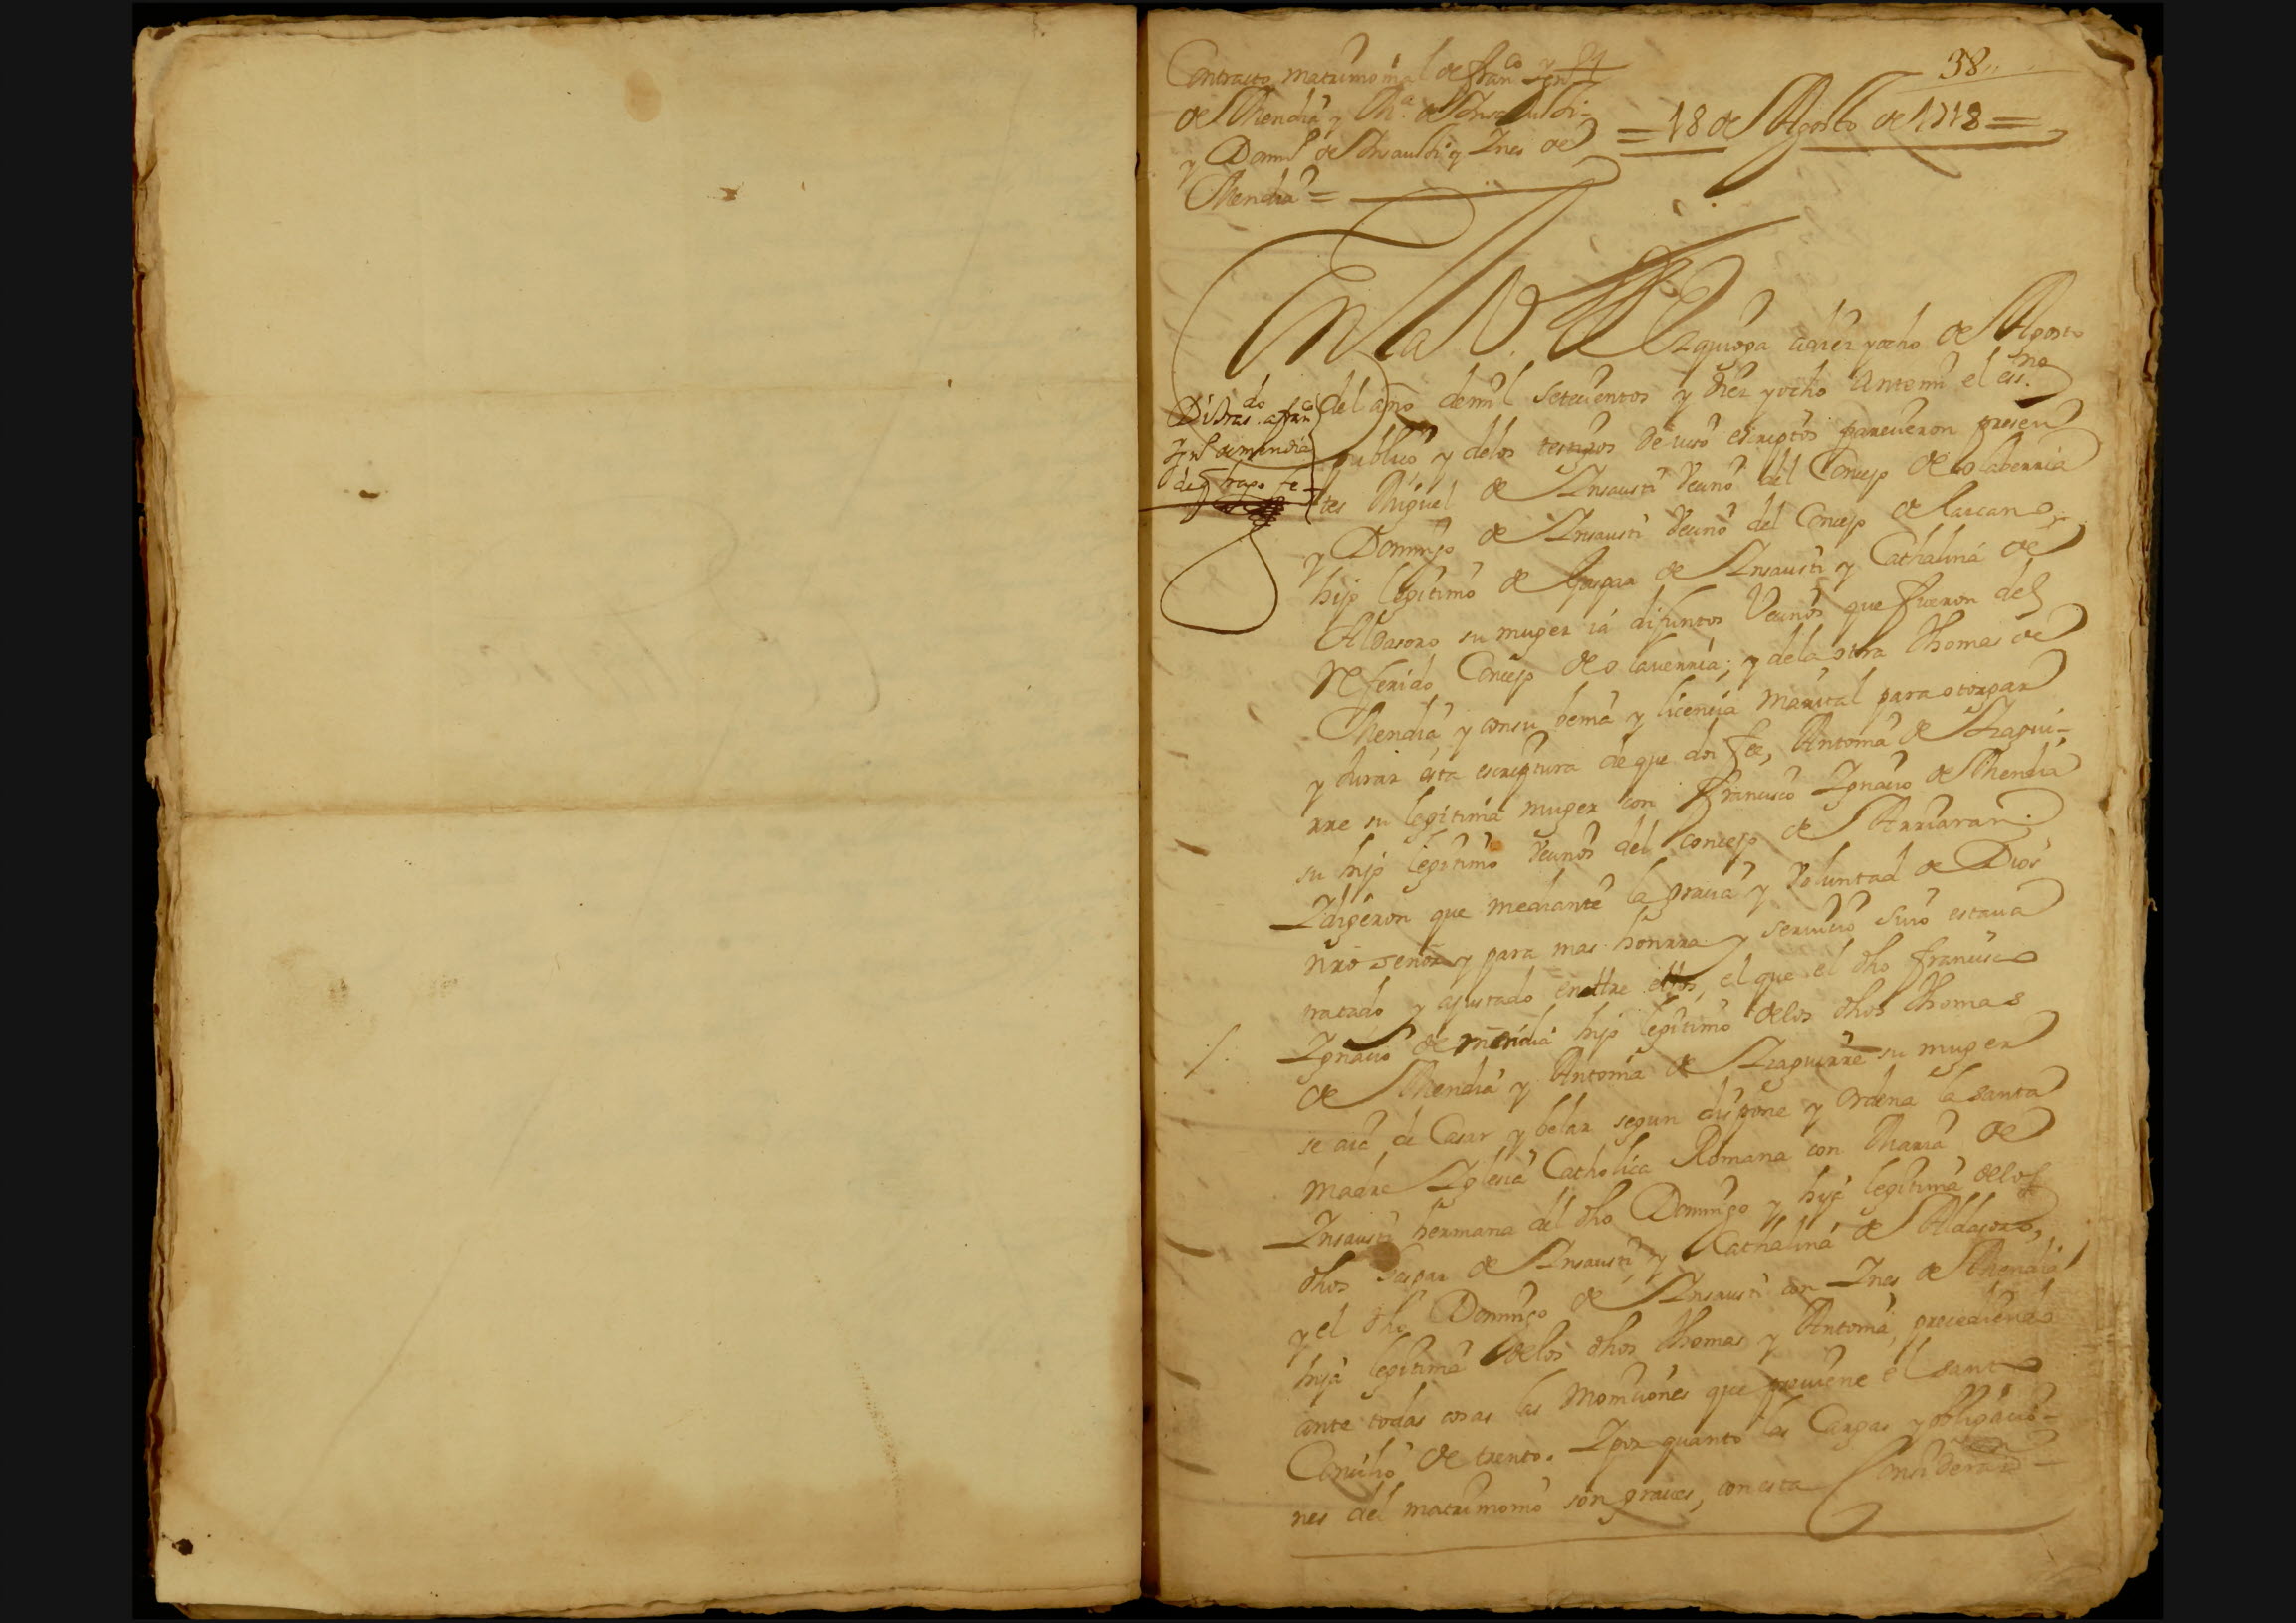 Contracto matrimonial de fran.co Ygn.o
de Mendia y M.a de Insausti-
y Dom.o de Insausti y Ines de
Mendia =
38,,
= 18 de Agosto de 1718 =
En la V. de Ezquioga a diez y ocho de Agosto
del año de mil setecientos y diez y ocho ante mi el ess.no
publico y de los testigos de iuso escriptos parecieron presen
tes Miguel de Insausti vecino del Concejo de olaberria
y Domingo de Insausti vecino del Concejo de Lazcano,
hijo legitimo de Gaspar de Insausti y Cathalina de
Aldasoro su muger ia difuntos vecinos que fueron del
Referido Concejo de olaverria; y de la otra Thomas de
Mendia y con su benia y licencia marital para otorgar
y Jurar esta escriptura de que doi fee, Antonia de Izagui-
rre su legitima muger con Francisco Ignacio de Mendia
su hijo legitimo vecinos del Concejo de Arriaran.
I digeron que mediante la gracia y voluntad de Dios
nro señor y para mas honrra y servicio suio estava
tratado y ajustado entre ellos, el que el dho francisco
Ignacio de mendia hijo legitimo de los dhos Thomas
de Mendia y Antonia de Izaguirre su muger
se aia de Casar y belar segun dispone y ordena la santa
madre Iglesia Catholica Romana con Maria de
Insausti hermana del dho Domingo y hija legitima de los
dhos Gaspar de Insausti y Cathalina de Aldasoro,
y el dho Domingo de Insausti con Ines de Mendia
hija legitima de los dhos Thomas y Antonia, precediendo
ante todas cosas las moniciones que previene el santo
Concilio de trento. I por quanto las Cargas y obligacio-
nes del matrimonio son graves, con esta Consideracion
Di tras.do a fran.co
Ygn.o de mendia
de q hago fe -